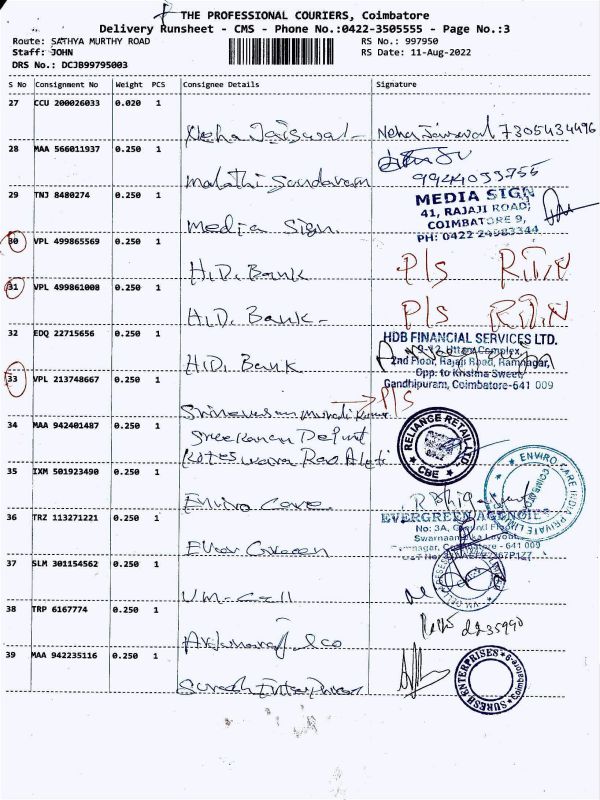 THE PROFESSIONAL COURIERS, Coimbatore
Delivery Runsheet - CMS - Phone No.:0422-3505555 - Page No.:3
Route: SATHYA MURTHY ROAD RS No.: 997950
Staff: JOHN RS Date: 11-Aug-2022
DRS No.: DCJB99795003
S No Consignment No Weight PCS Consignee Details Signature
27 CCU 200026033 0.020 1
Neha Jaiswal Neha Jaiswal 7305434496
28 MAA 566011937 0.250 1
Malathi Sundaram 9944033755
29 TNJ 8480274 0.250 1
Media Sign. MEDIA SIGN
41, RAJAJI ROAD,
COIMBATORE 9,
PH: 0422
30 VPL 499865569 0.250 1
H.D. Bank P/S RTN
31 VPL 499861008 0.250 1
H.D. Bank P/S RTN
32 EDQ 22715656 0.250 1
H.D. Bank HDB FINANCIAL SERVICES LTD.
2nd Floor, Rajaji Road, Ramnagar,
Opp. to Krishna Sweets
Gandhipuram, Coimbatore-641 009
33 VPL 213748667 0.250 1
P/S
34 MAA 942401487 0.250 1
RELIANCE RETAIL LTD.
CBE
35 IXM 501923490 0.250 1
Enviro Care ENVIRO CARE INDIA PRIVATE LIMITED
36 TRZ 113271221 0.250 1
Ever Green EVERGREEN AGENCIES
No: 3A,
- 641 009
37 SLM 301154562 0.250 1
38 TRP 6167774 0.250 1
39 MAA 942235116 0.250 1
Suresh Enterprises SURESH ENTERPRISES